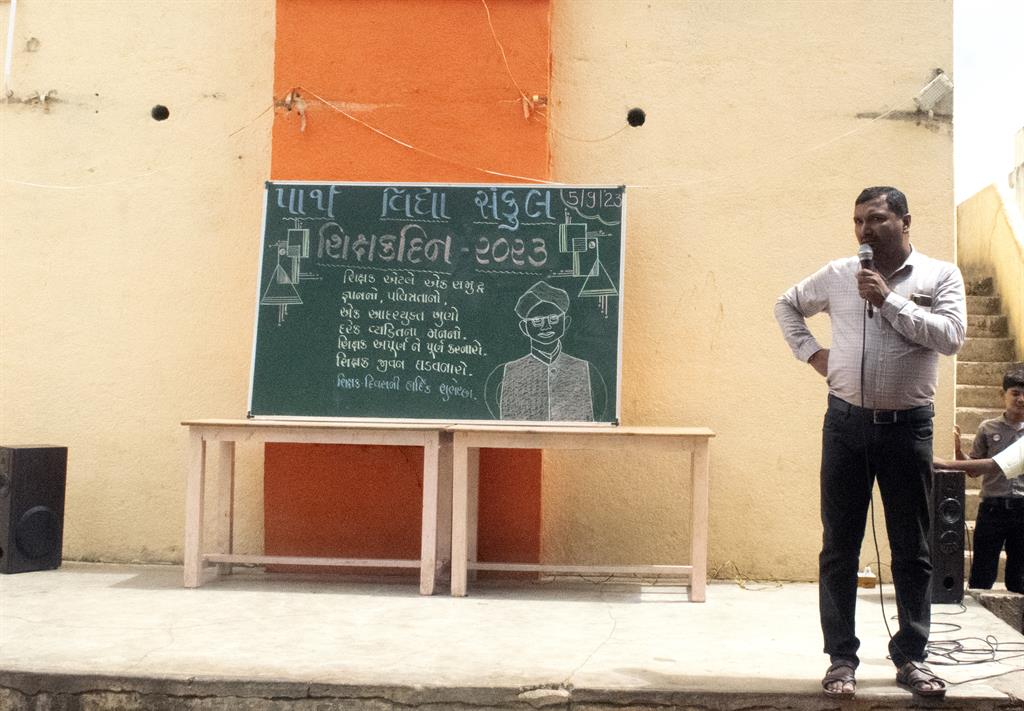 પાર્થ વિદ્યા સંકુલ 5/9/23
શિક્ષકદિન - ૨૦૨૩
શિક્ષક એટલે એક સમુદ્ર
જ્ઞાનનો, પવિત્રતાનો,
એક આદરયુક્ત ખુણો
દરેક વ્યક્તિના મનનો.
શિક્ષક અપૂર્ણ ને પૂર્ણ કરનારો.
શિક્ષક જીવન ઘડવનારો.
શિક્ષક-દિવસની હાર્દિક શુભેચ્છા.